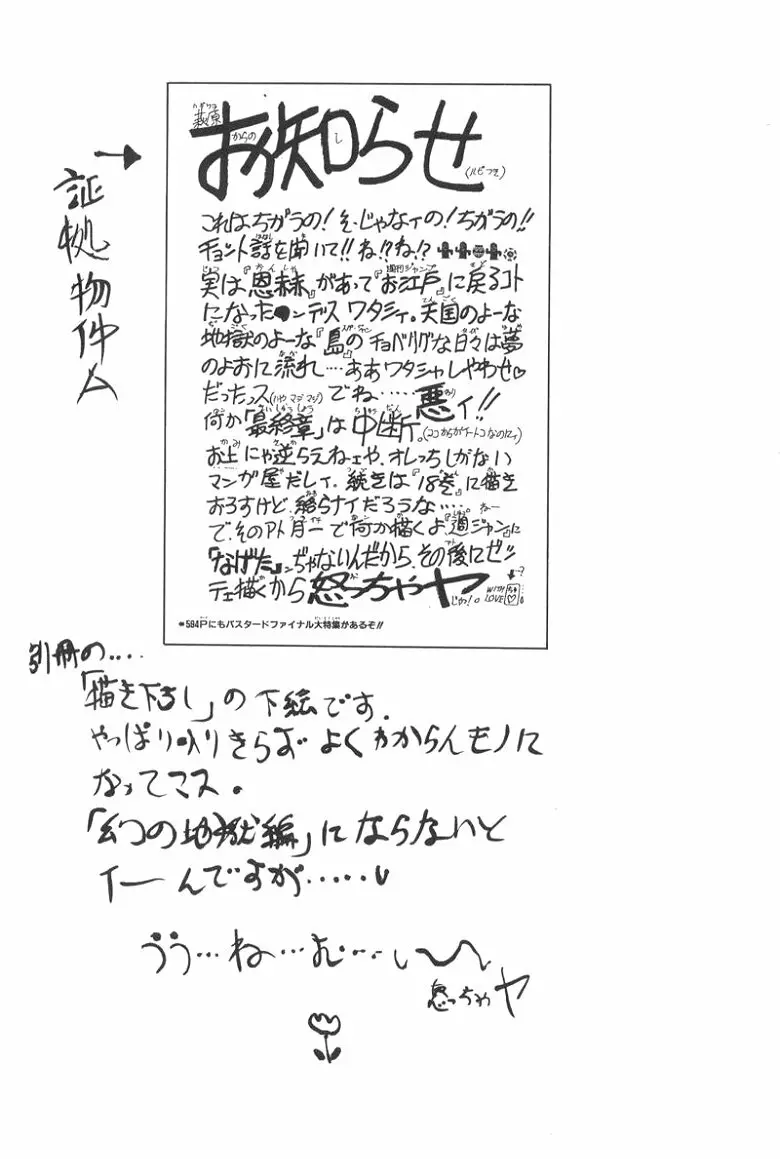 証拠物件A
萩原からのお知らせ
(ルビつき)
これはちがうの!そーじゃなィの!ちがうの!!
チョット話を聞いて!!ね!?ね!?
実は『恩赦』があって『お江戸』に戻るコト
になったンデス ワタシィ。天国のよーな
地獄のよーな『島』のチョベリグな日々は夢
のよおに流れ…ああワタシャしやわせ♡
だったっス(いや マジ マジ)でね……悪ィ!!
何か「最終章」は中断。(ココからがイートコなのにィ)
お上にゃ逆らえねェや、オレっちしがない
マンガ屋だしィ。続きは『18巻』に描き
おろすけど、終らナイだろうな…。ねー
で、そのアト月一で何か描くよ『週ジャン』に
『なげた』ンぢゃないんだから、その後にゼッ
テェ描くから怒っちゃヤ じゃ!。
WITH LOVE
*594Pにもバスタードファイナル大特集があるぞ!!
別冊の‥‥
「描き下ろし」の下絵です。
やっぱり入りきらず よくわからんモノに
なってマス。
「幻の地獄編」にならないと
イーんですが‥‥‥
ゔゔ…ね…む…い〜
怒っちゃヤ